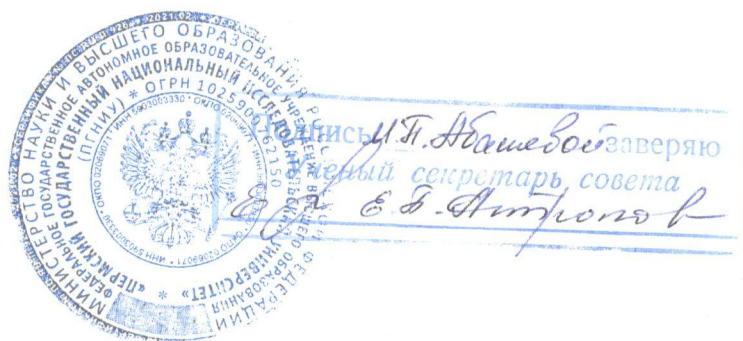 МИНИСТЕРСТВО НАУКИ И ВЫСШЕГО ОБРАЗОВАНИЯ РОССИЙСКОЙ ФЕДЕРАЦИИ
ФЕДЕРАЛЬНОЕ ГОСУДАРСТВЕННОЕ АВТОНОМНОЕ ОБРАЗОВАТЕЛЬНОЕ УЧРЕЖДЕНИЕ ВЫСШЕГО ОБРАЗОВАНИЯ
«ПЕРМСКИЙ ГОСУДАРСТВЕННЫЙ НАЦИОНАЛЬНЫЙ ИССЛЕДОВАТЕЛЬСКИЙ УНИВЕРСИТЕТ» *
(ПГНИУ) * ОГРН 1025900762150
ИНН 5903003330 • ОКПО 02069071
Подпись И.П. Абашевой заверяю
Ученый секретарь совета
Е.П. Антропов